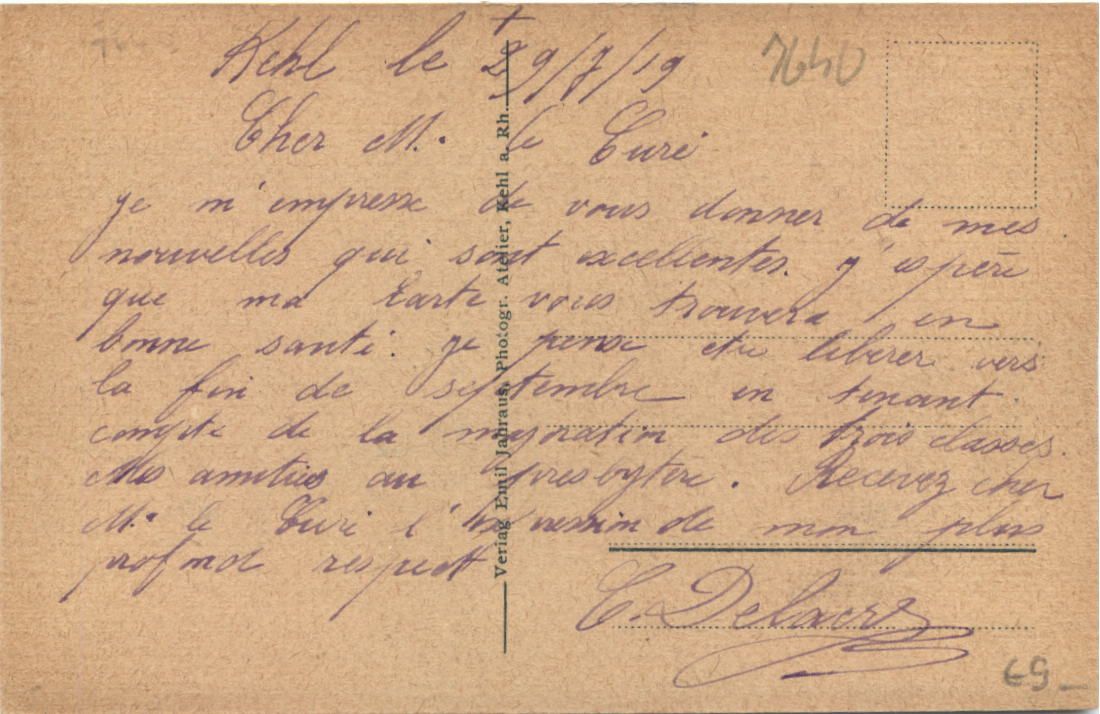 Kehl le 29/7/19
7640
Cher M. le Curé
je m'empresse de vous donner de mes
nouvelles qui sont excellentes. j'espère
que ma carte vous trouvera en
bonne santé. je pense etre liberer vers
la fin de septembre en tenant
compte de la majoration des trois classes.
Mes amitiés au presbytère. Recevez cher
M. le Curé l'expression de mon plus
profond respect
Verlag Emil Jahraus, Photogr. Atelier, Kehl a. Rh.